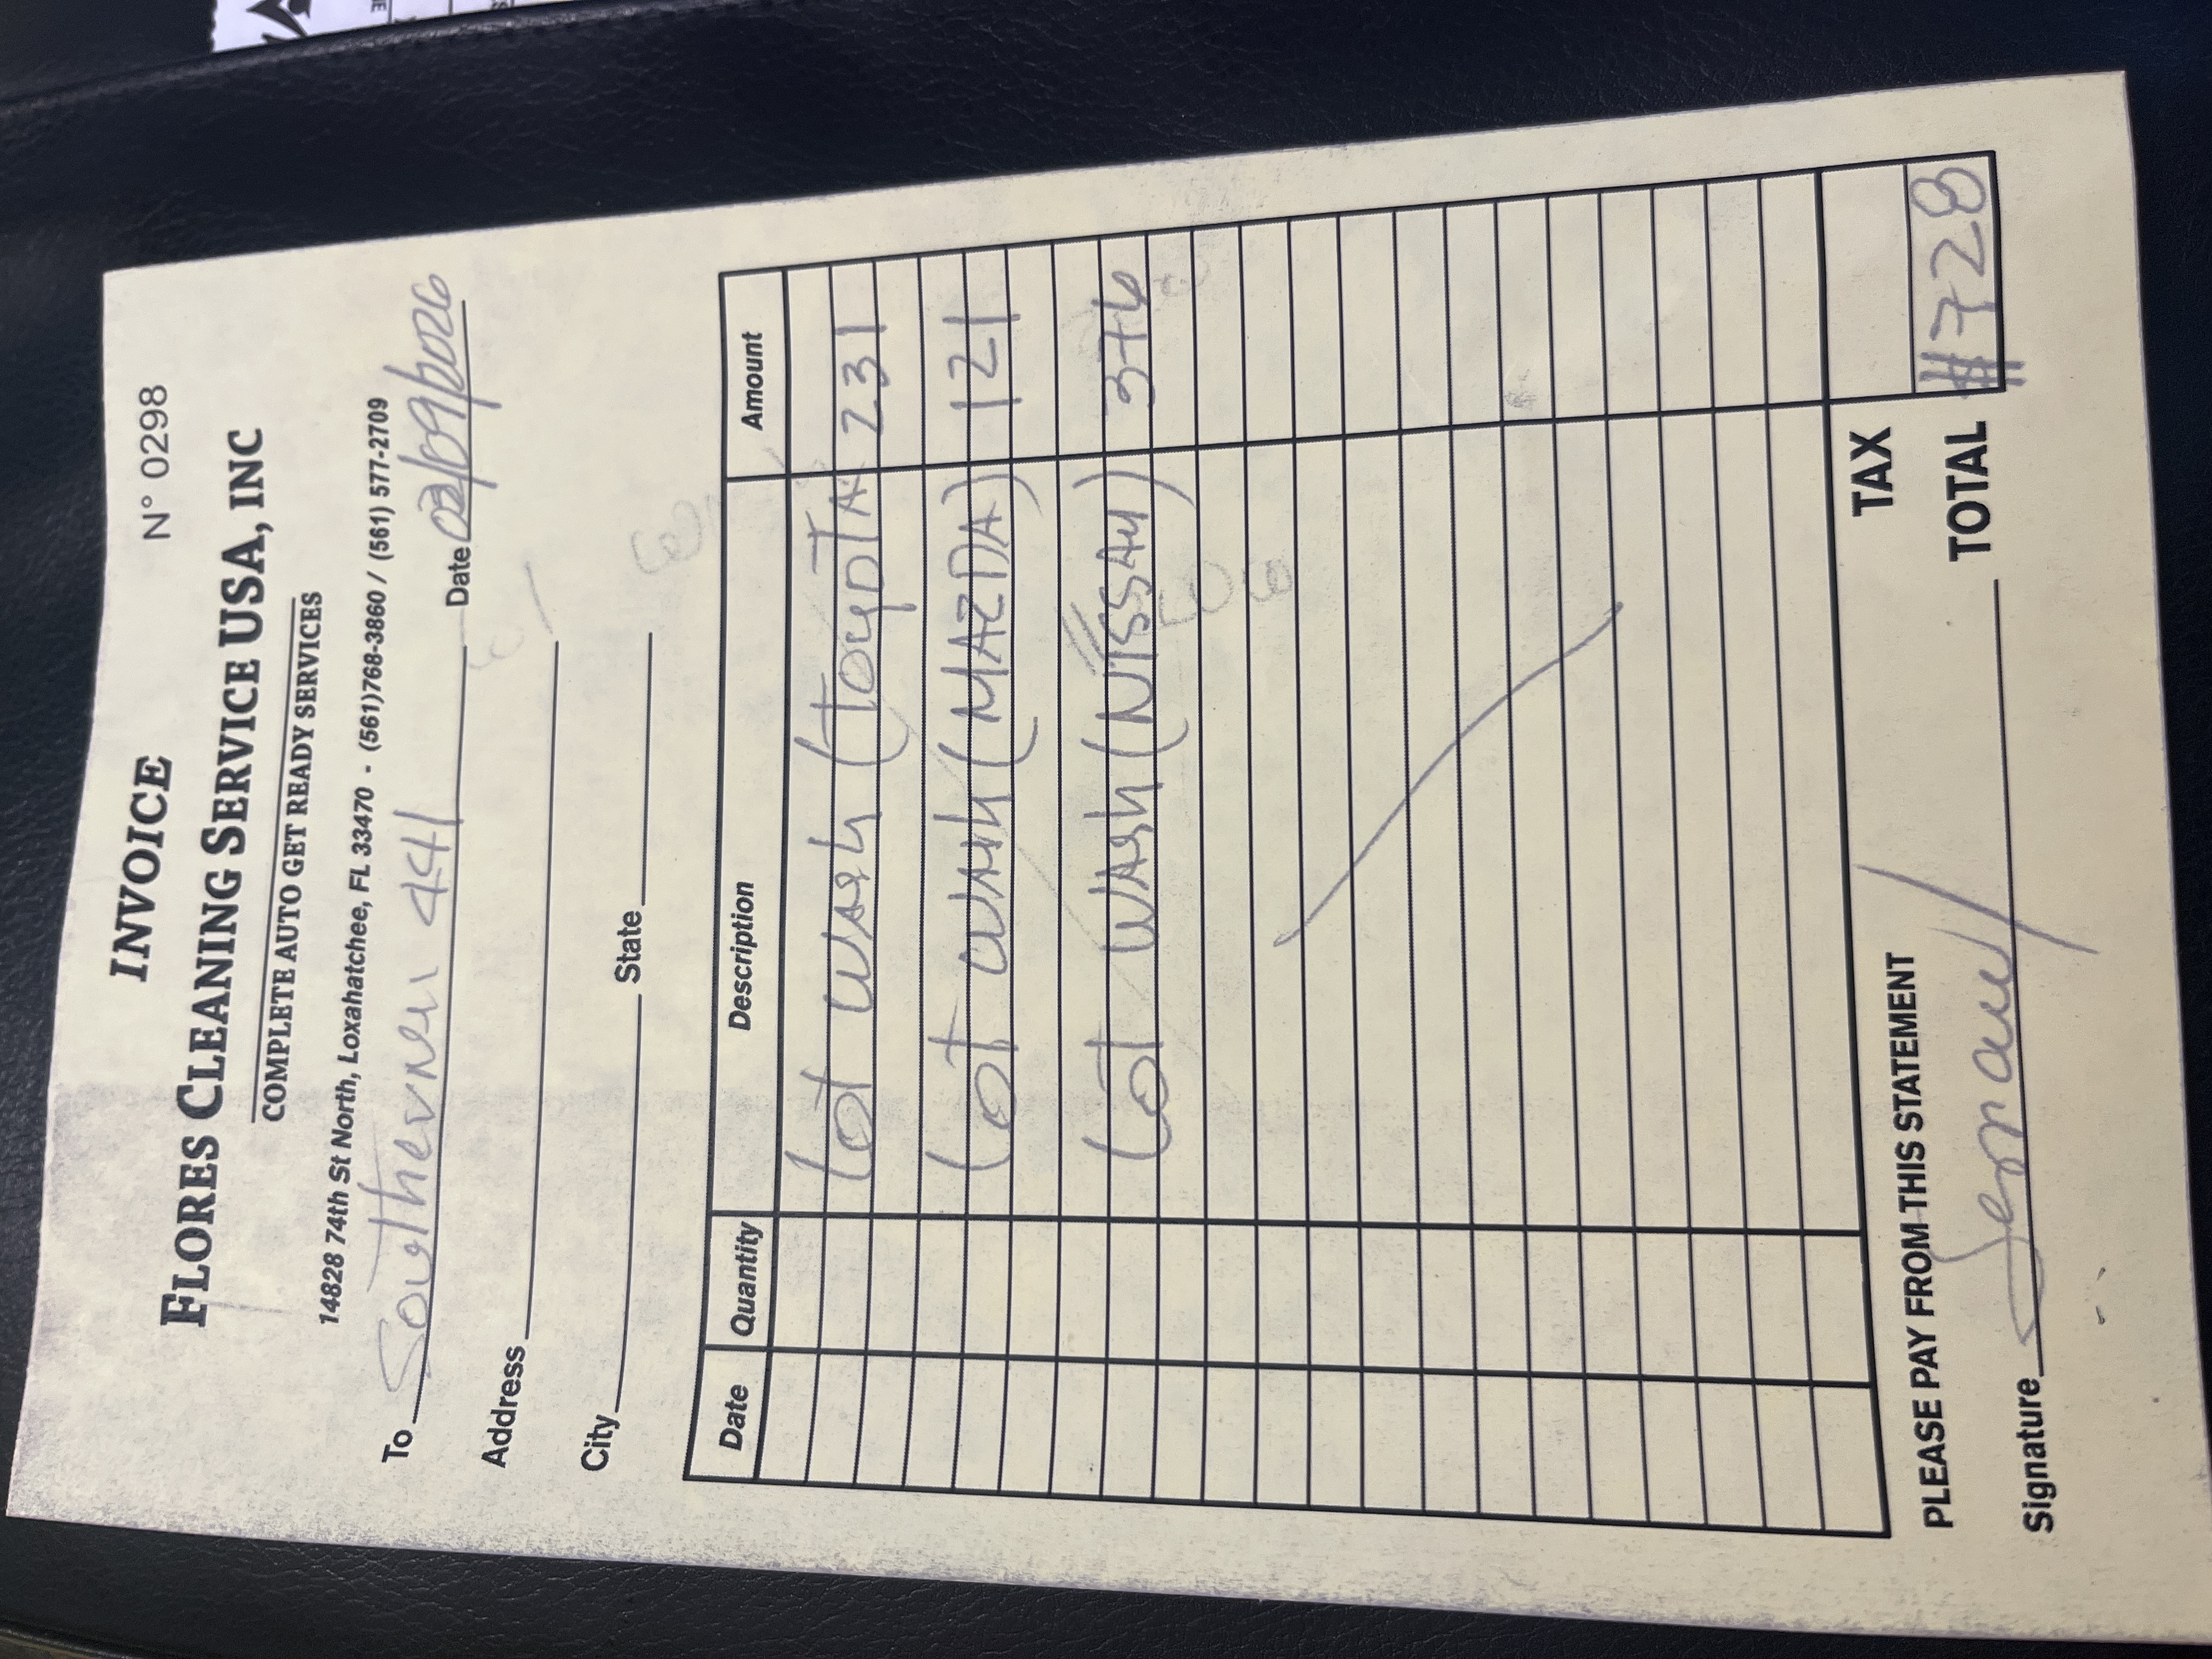 INVOICE N° 0298
FLORES CLEANING SERVICE USA, INC
COMPLETE AUTO GET READY SERVICES
14828 74th St North, Loxahatchee, FL 33470 - (561)768-3860 / (561) 577-2709
To Southern 441 Date 02/09/2026
Address
City State
Date Quantity Description Amount
Lot wash (ToyoTA 231
Lot wash (MAZDA) 121
Lot wash (NISSAN) 376
TAX
PLEASE PAY FROM THIS STATEMENT
TOTAL #728
Signature